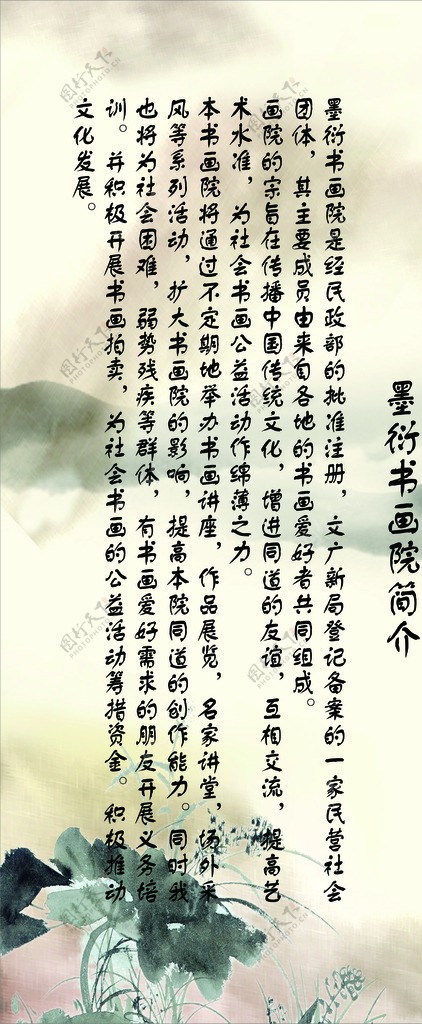 墨衍书画院简介
墨衍书画院是经民政部的批准注册，文广新局登记备案的一家民营社会
团体，其主要成员由来自各地的书画爱好者共同组成。
画院的宗旨在传播中国传统文化，增进同道的友谊，互相交流，提高艺
术水准，为社会书画公益活动作绵薄之力。
本书画院将通过不定期地举办书画讲座，作品展览，名家讲堂，场外采
风等系列活动，扩大书画院的影响，提高本院同道的创作能力。同时我
也将为社会困难，弱势残疾等群体，有书画爱好需求的朋友开展义务培
训。并积极开展书画拍卖，为社会书画的公益活动筹措资金。积极推动
文化发展。
图行天下
PHOTOPHOTO.CN